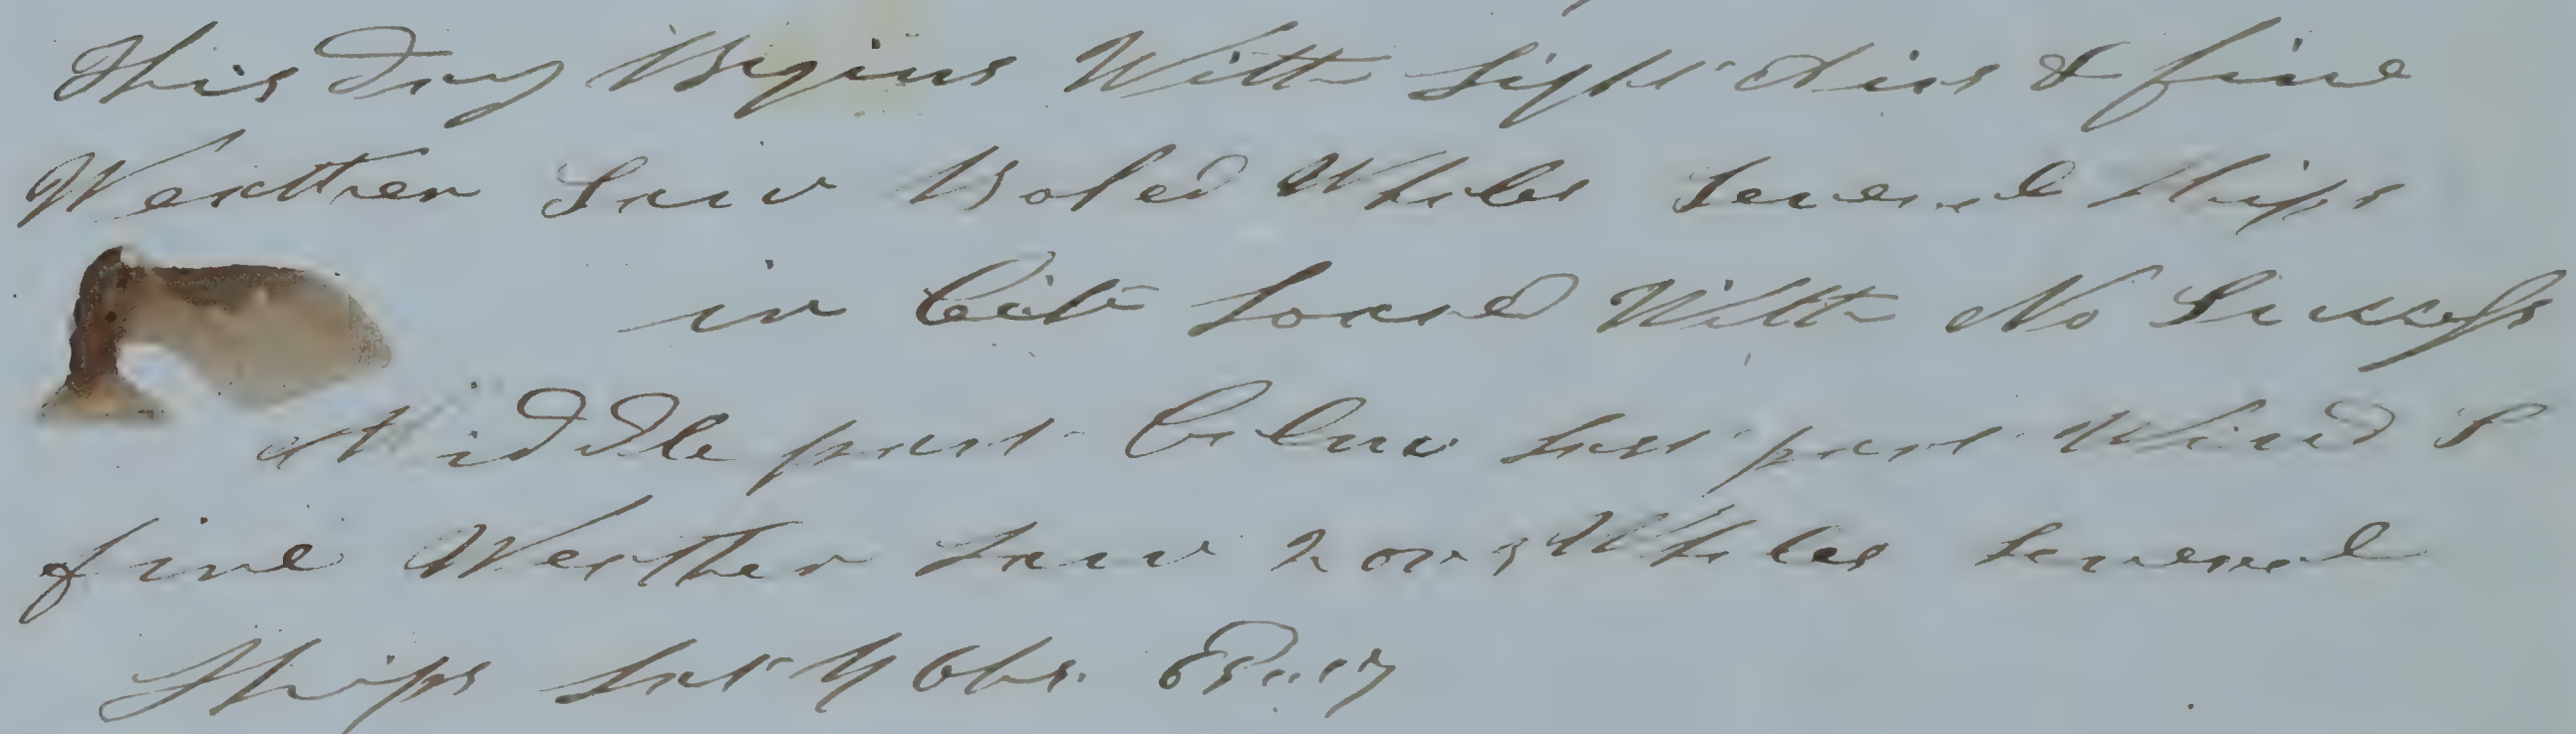 This Day Begins With Light Airs & fine
Weather Saw Boled Whales Several Ships
in Cite Loared With No Success
Middle part Calm Last part Wind S
fine Weather Saw Whales Several
Ships Lat By Obs.